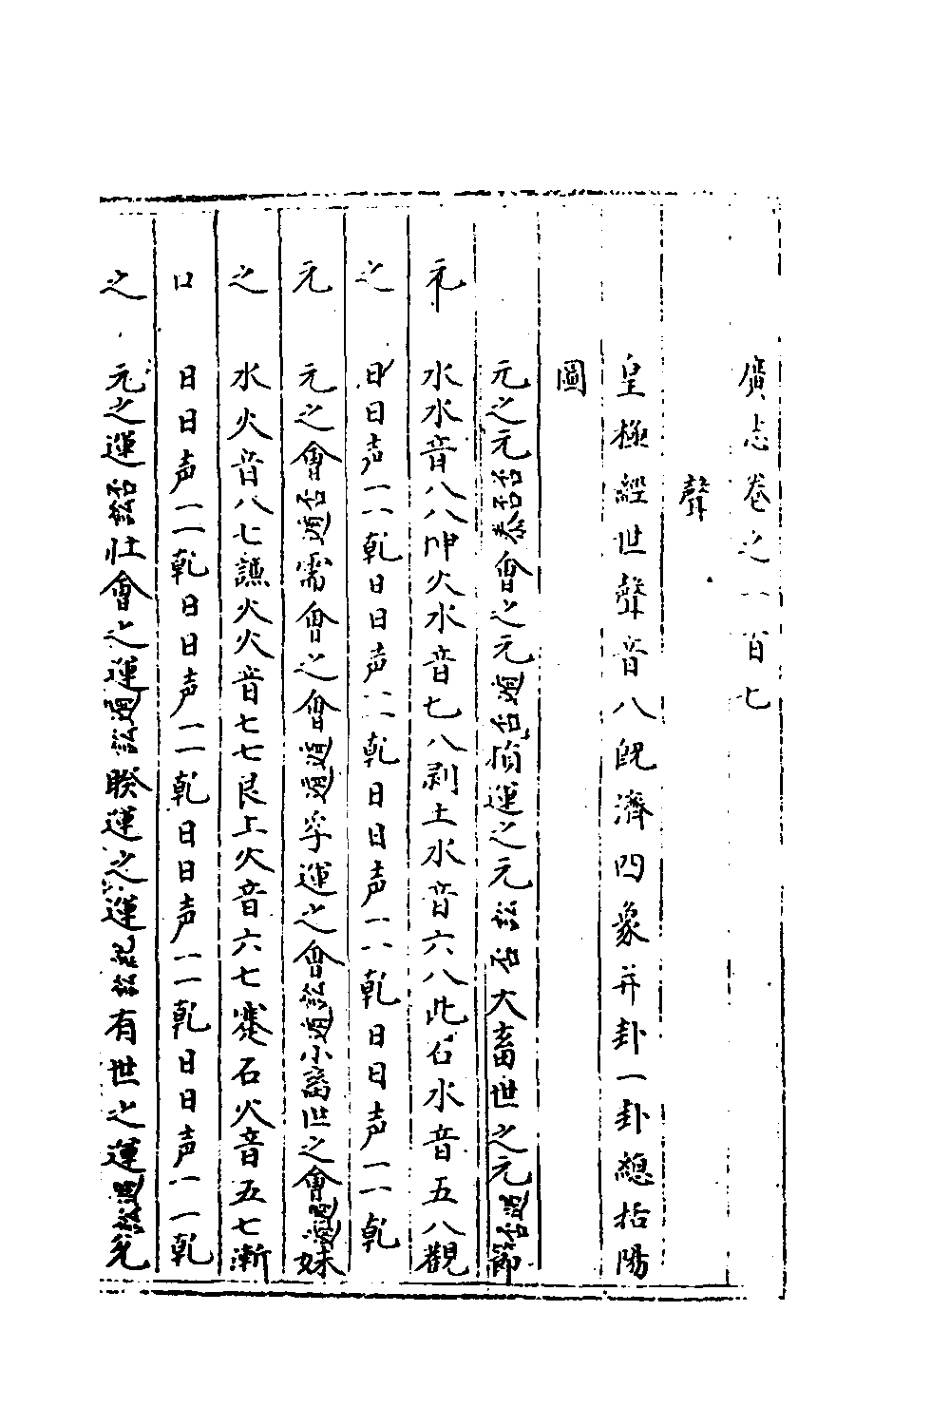 廣志卷之一百七
聲
皇極經世聲音八既濟四象并卦一卦總括陽
圖
元之元 會之元 損運之元 大畜世之元 節
元 水水音八八坤火水音七八剥土水音六八比石水音五八觀
之 日日声一一乾日日声一一乾日日声一一乾日日声一一乾
元 元之會 需會之會 孚運之會 小畜世之會 妹
之 水火音八七謙火火音七七艮土火音六七蹇石火音五七漸
口 日日声一一乾日日声一一乾日日声一一乾日日声一一乾
之 元之運 壯會之運 睽運之運 有世之運 兌